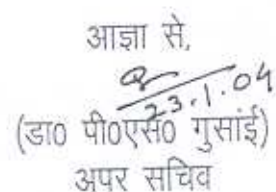 आज्ञा से,
23.1.04
(डा0 पी0एस0 गुसांई)
अपर सचिव